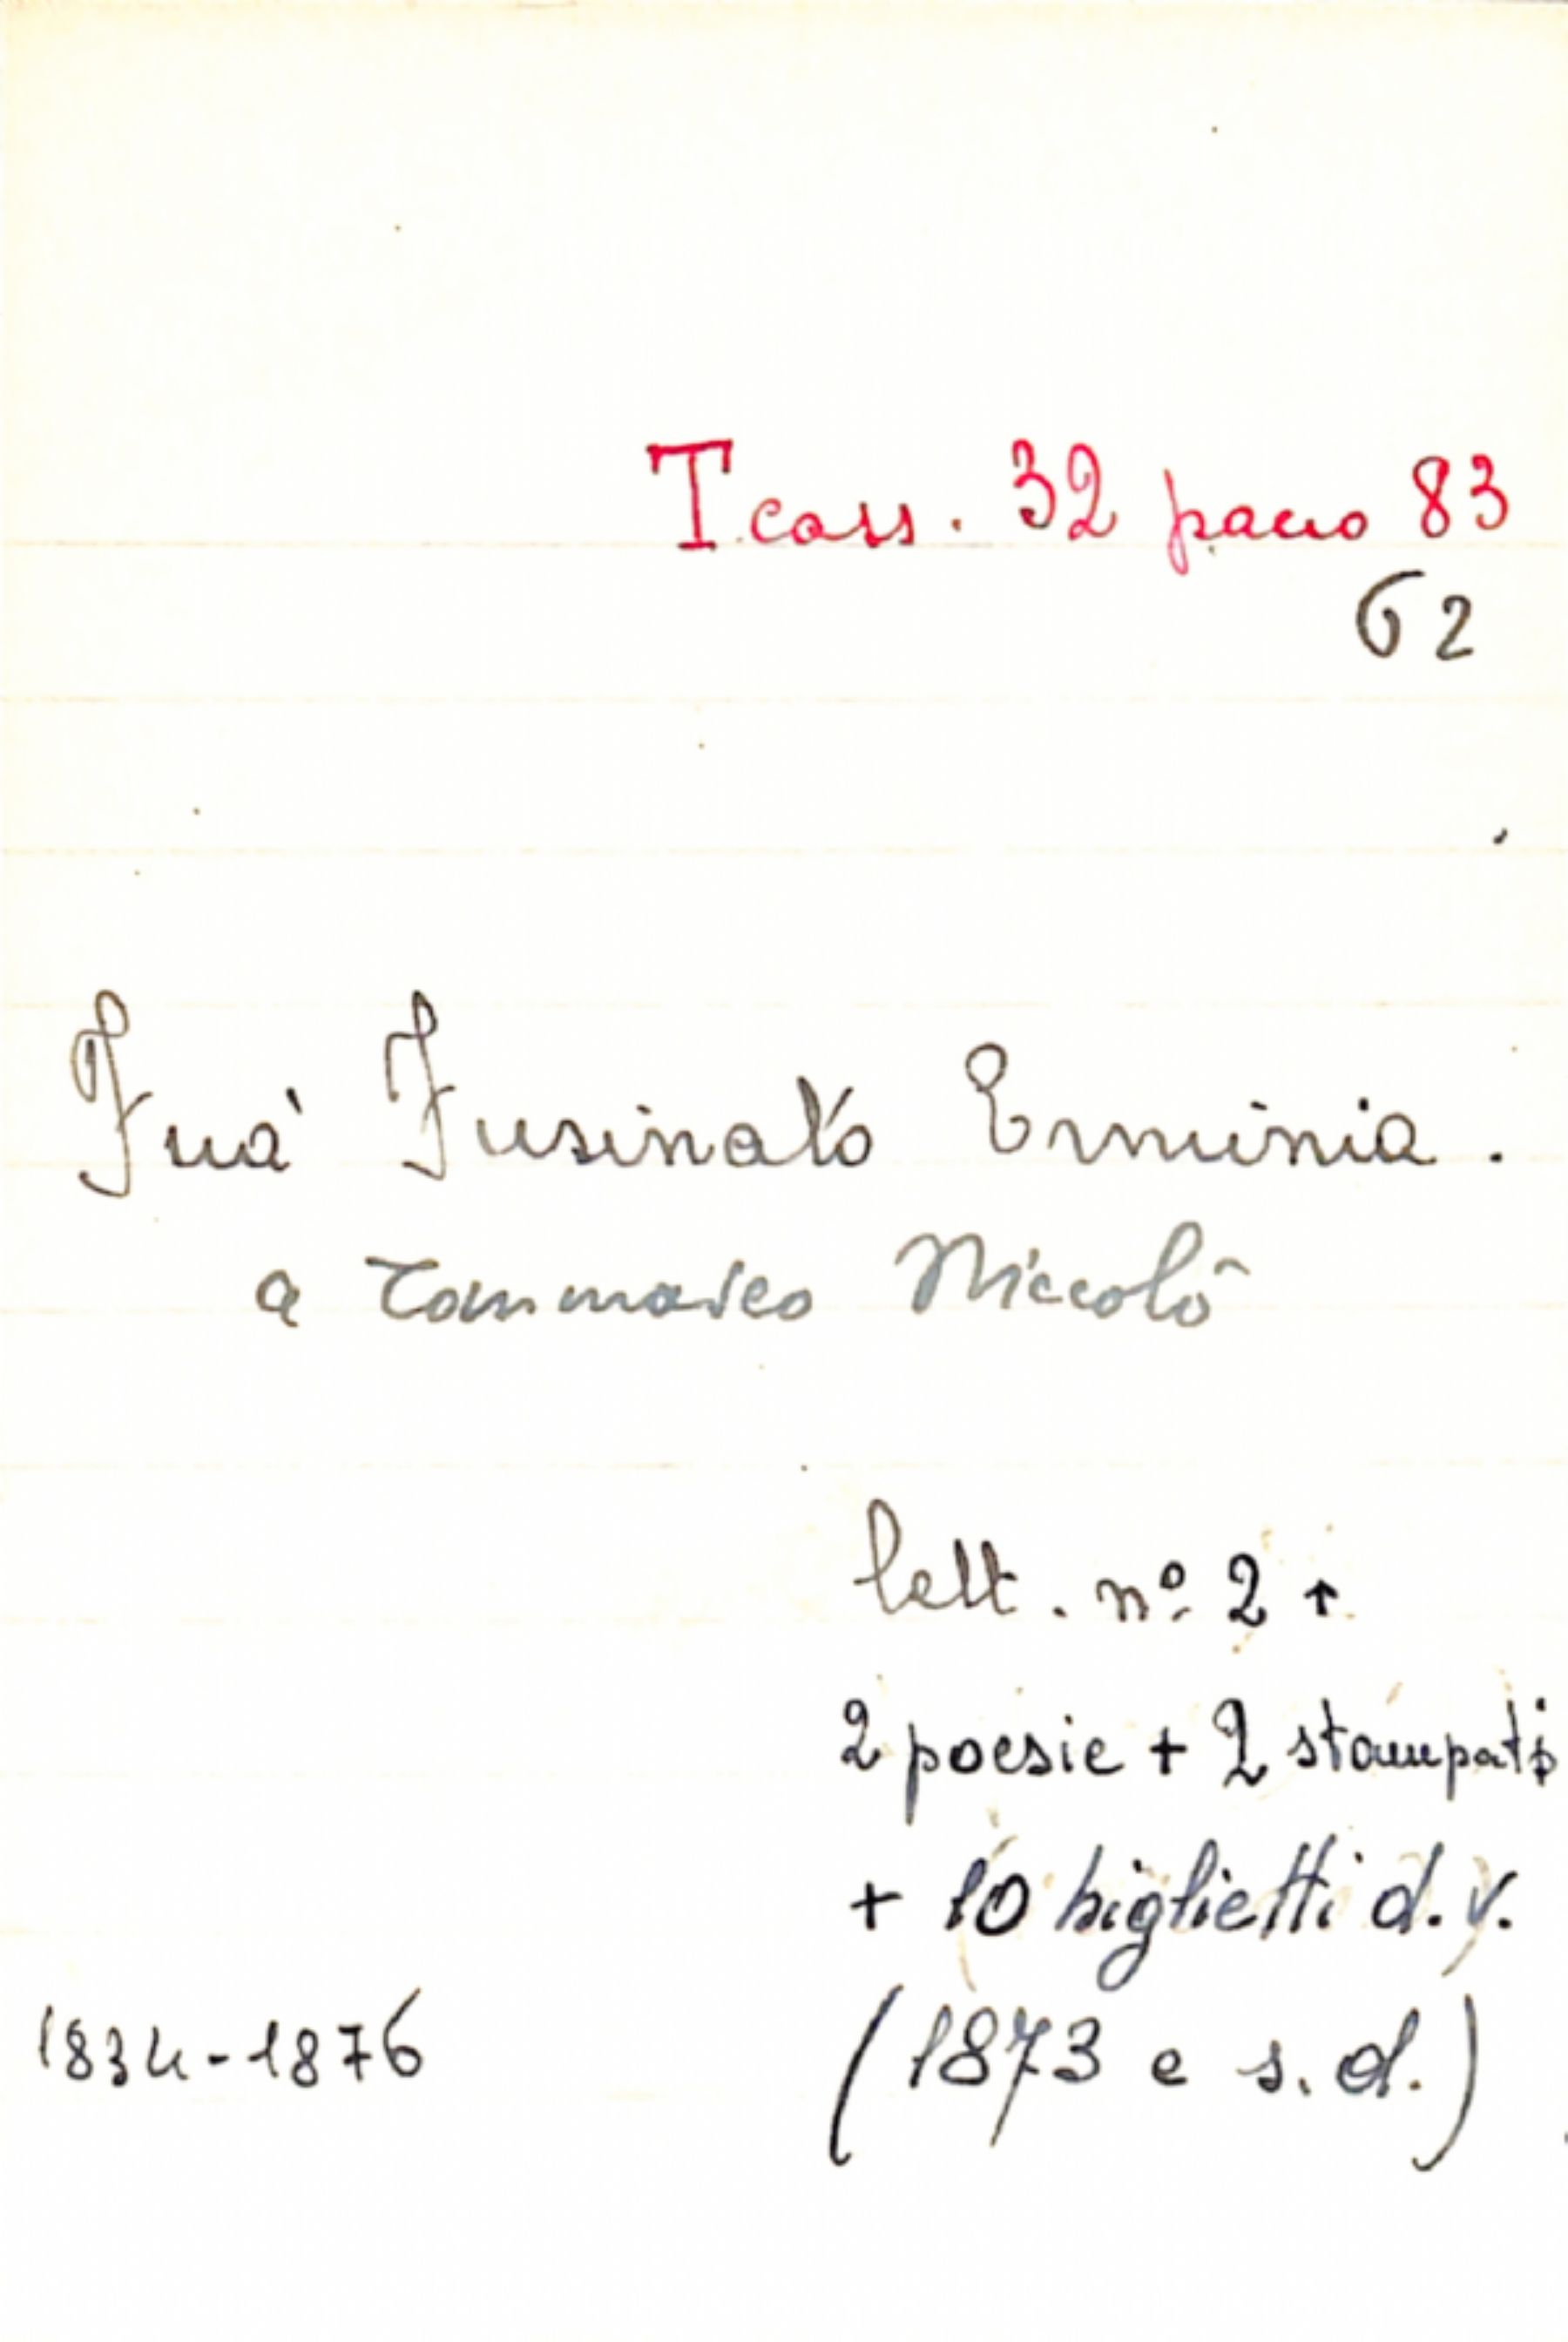 T. cass. 32 pacco 83
62
Fuà Fusinato Erminia.
a Tommaseo Niccolò
lett. nº 2 +
2 poesie + 2 stampati
+ 10 biglietti d.v.
1834-1876 (1873 e s.d.)